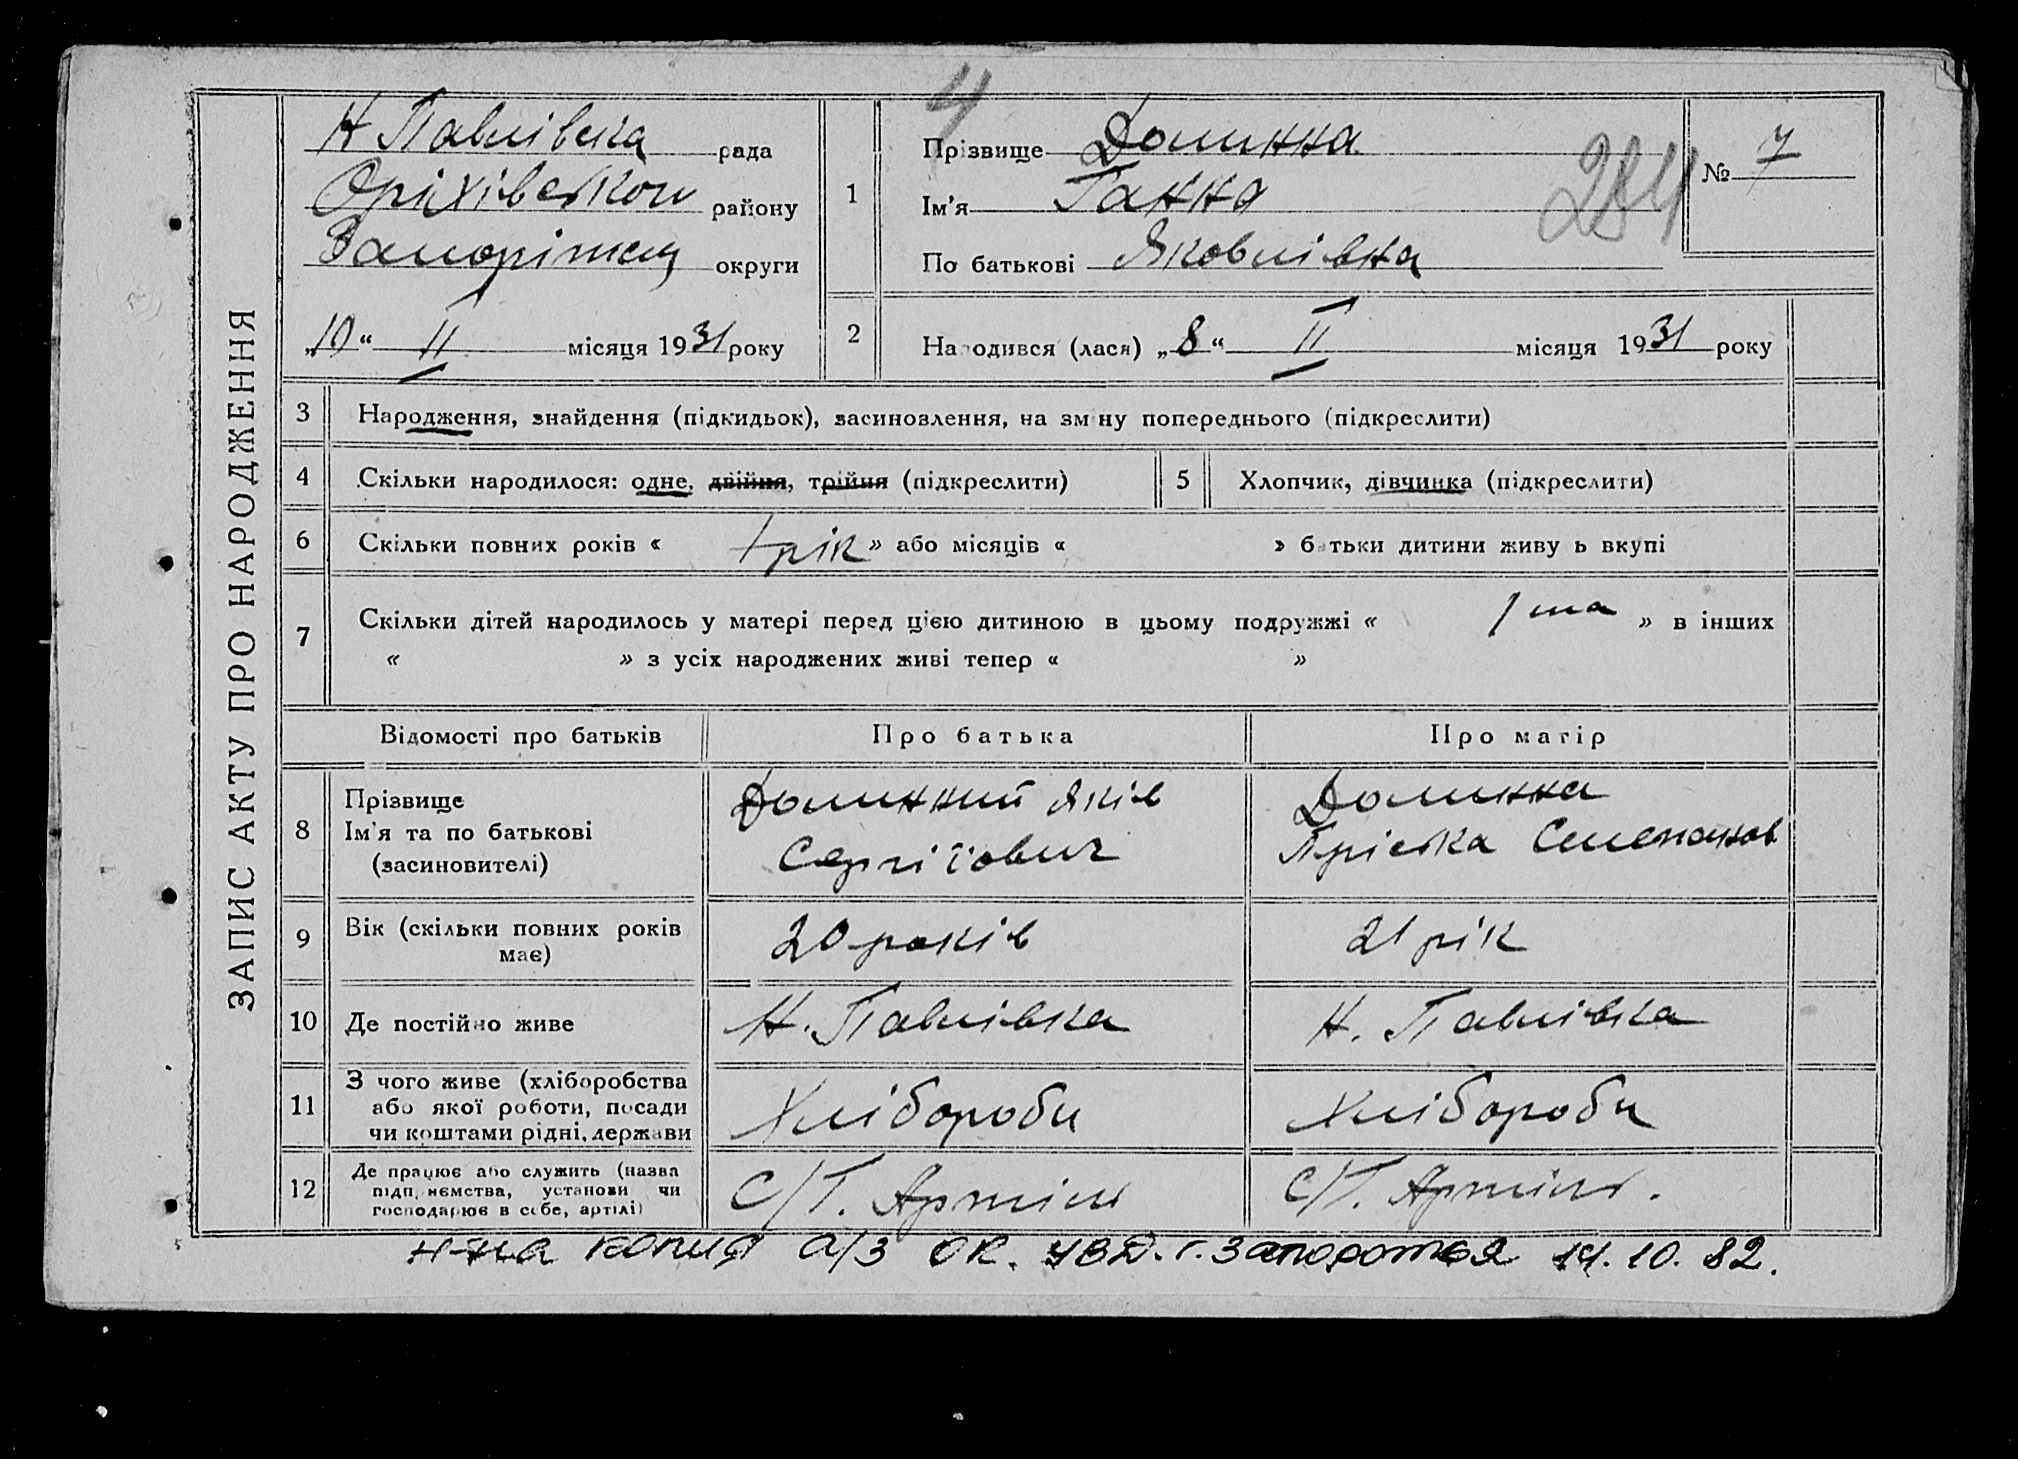 ЗАПИС АКТУ ПРО НАРОДЖЕННЯ
Н Павлівска рада
Оріхівського району
округи
„10“ II місяця 1931 року
4
1 Прізвище Долинна
Ім'я Ганна
По батькові Яковлівна
284
№ 7
2 Народився (лася) „8“ II місяця 1931 року
3 Народження, знайдення (підкидьок), засиновлення, на зміну попереднього (підкреслити)
4 Скільки народилося: одне, двійня, трійня (підкреслити) 5 Хлопчик, дівчинка (підкреслити)
6 Скільки повних років « 1 рік » або місяців « » батьки дитини живуть вкупі
7 Скільки дітей народилось у матері перед цією дитиною в цьому подружжі « 1 ша » в інших
« » з усіх народжених живі тепер « »
Відомості про батьків Про батька Про матір
8 Прізвище Ім'я та по батькові (засиновителі) Долинний Яків Сергіїович Долинна Пріська Семенов
9 Вік (скільки повних років має) 20 років 21 рік
10 Де постійно живе Н. Павлівка Н. Павлівка
11 З чого живе (хліборобства або якої роботи, посади чи коштами рідні, держави Хлібороби Хлібороби
12 Де працює або служить (назва підприємства, установи чи господарює в себе, артілі) С/Г. Артіль С/Г. Артіль.
н-на копия а/з ОК. УВД. г. Запорожья 14. 10. 82.